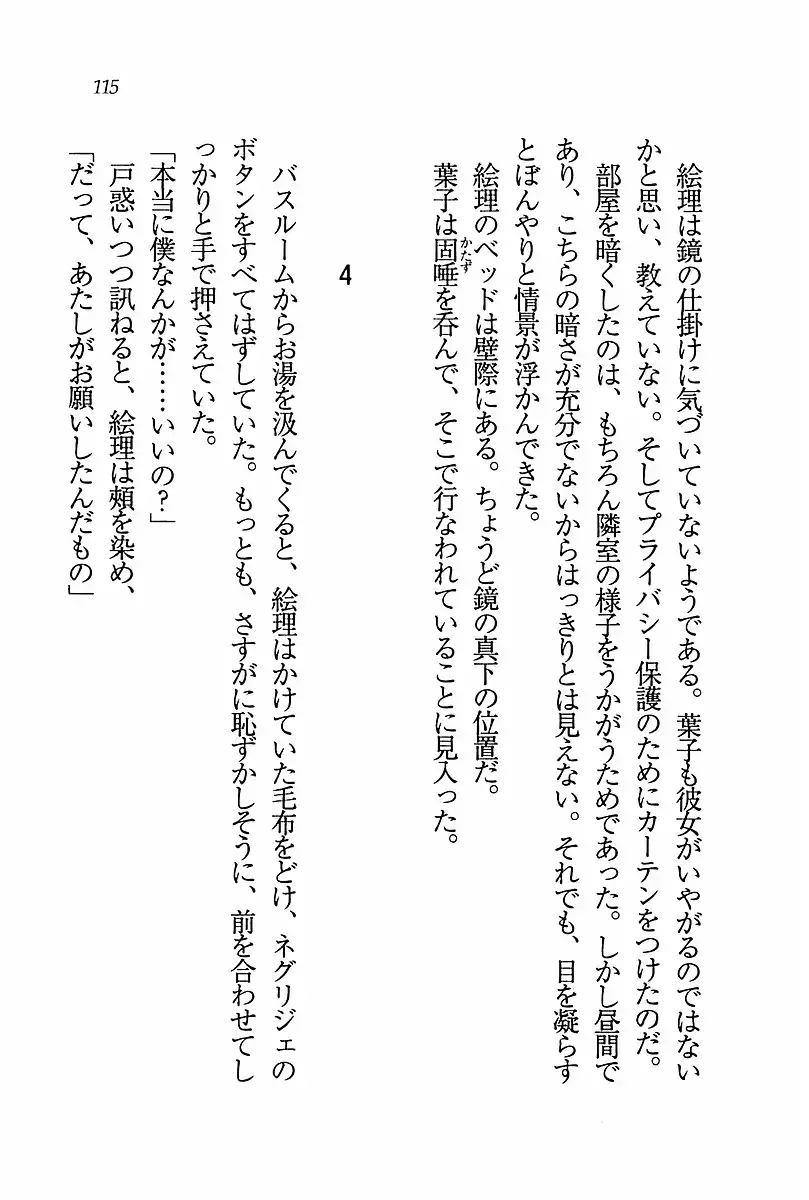 115
絵理は鏡の仕掛けに気づいていないようである。葉子も彼女がいやがるのではない
かと思い、教えていない。そしてプライバシー保護のためにカーテンをつけたのだ。
部屋を暗くしたのは、もちろん隣室の様子をうかがうためであった。しかし昼間で
あり、こちらの暗さが充分でないからはっきりとは見えない。それでも、目を凝らす
とぼんやりと情景が浮かんできた。
絵理のベッドは壁際にある。ちょうど鏡の真下の位置だ。
葉子は固唾を呑んで、そこで行なわれていることに見入った。
かたず
4
バスルームからお湯を汲んでくると、絵理はかけていた毛布をどけ、ネグリジェの
ボタンをすべてはずしていた。もっとも、さすがに恥ずかしそうに、前を合わせてし
っかりと手で押さえていた。
「本当に僕なんかが……いいの？」
戸惑いつつ訊ねると、絵理は頰を染め、
「だって、あたしがお願いしたんだもの」